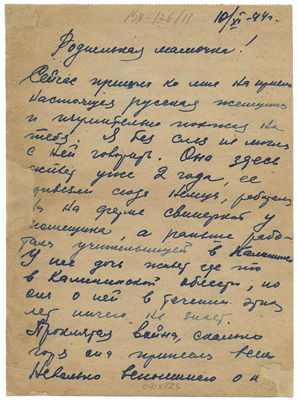 КХ-126/11
10/XI-44г.
Родненькая мамочка!
Сейчас пришла ко мне на прием
настоящая русская женщина
и изумительно похожа на
тебя. Я без слез не могла
с ней говорить. Она здесь
живет уже 2 года, ее
привезли сюда немцы, работала
на ферме свинаркой у
помещика, а раньше рабо-
тала учительницей в Калинине
У нее дочь живет где то
в Калининской области, но
она о ней в течении этих
лет ничего не знает.
Проклятая война, сколько
горя она принесла всем.
Невольно вспомнишь о